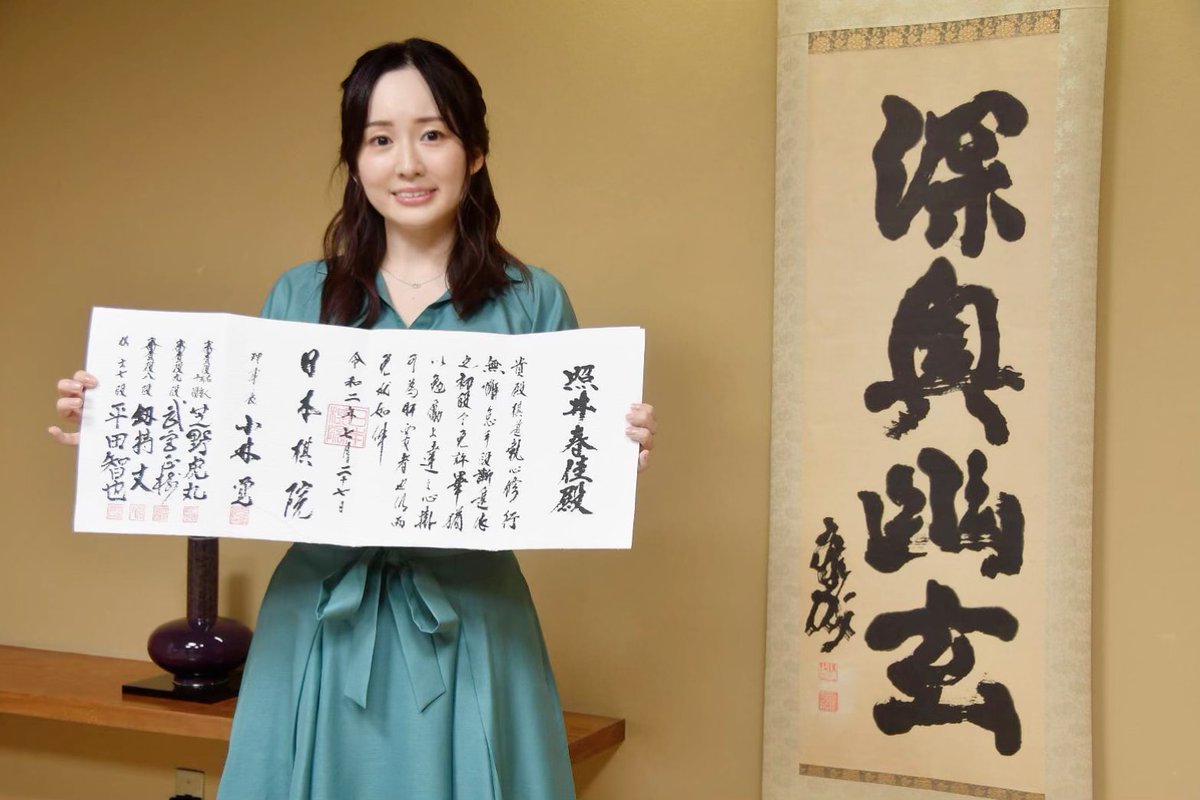 照井春佳殿
貴殿棋道執心修行
無懈怠手段漸進依
之初段令免許畢猶
以勉励上達之心掛
可為肝要者也仍而
免状如件
令和二年七月二十七日
日本棋院
理事長 小林覚
芝野虎丸
審査役九段 武宮正樹
審査役八段 剱持丈
棋士七段 平田智也
深奥幽玄
康成